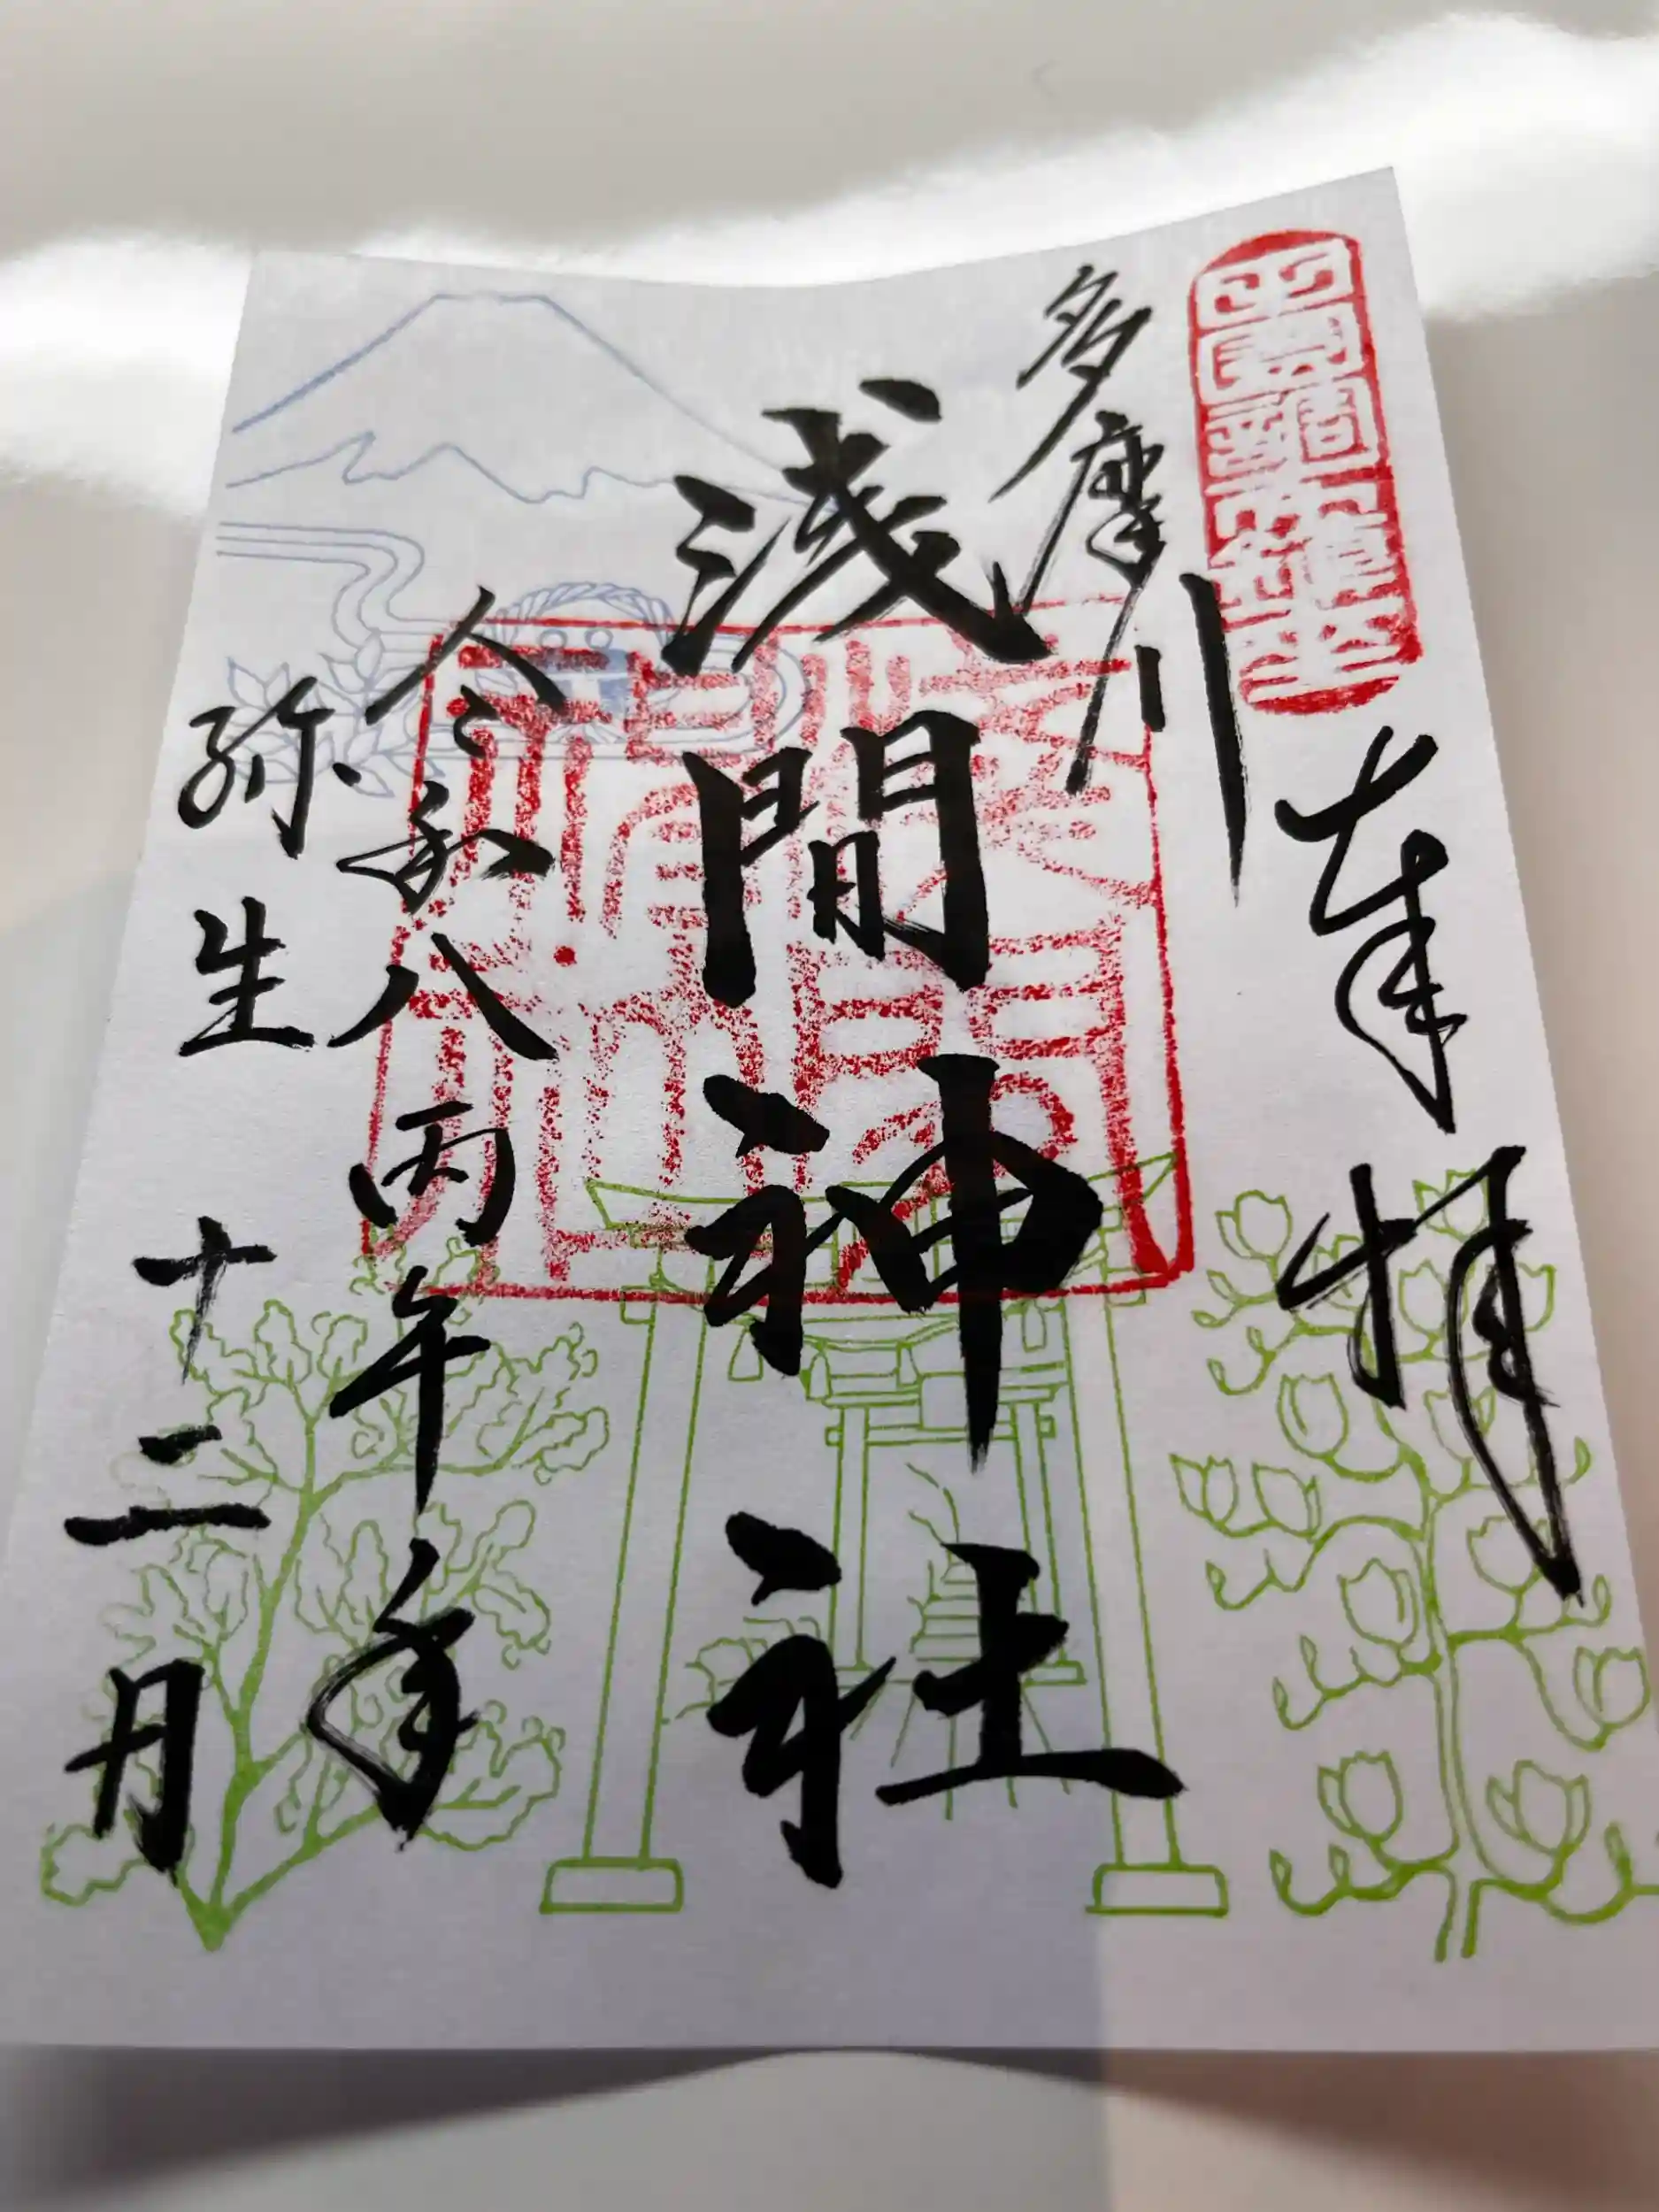 奉拝
多摩川
浅間神社
令和八丙午年
弥生 十二月